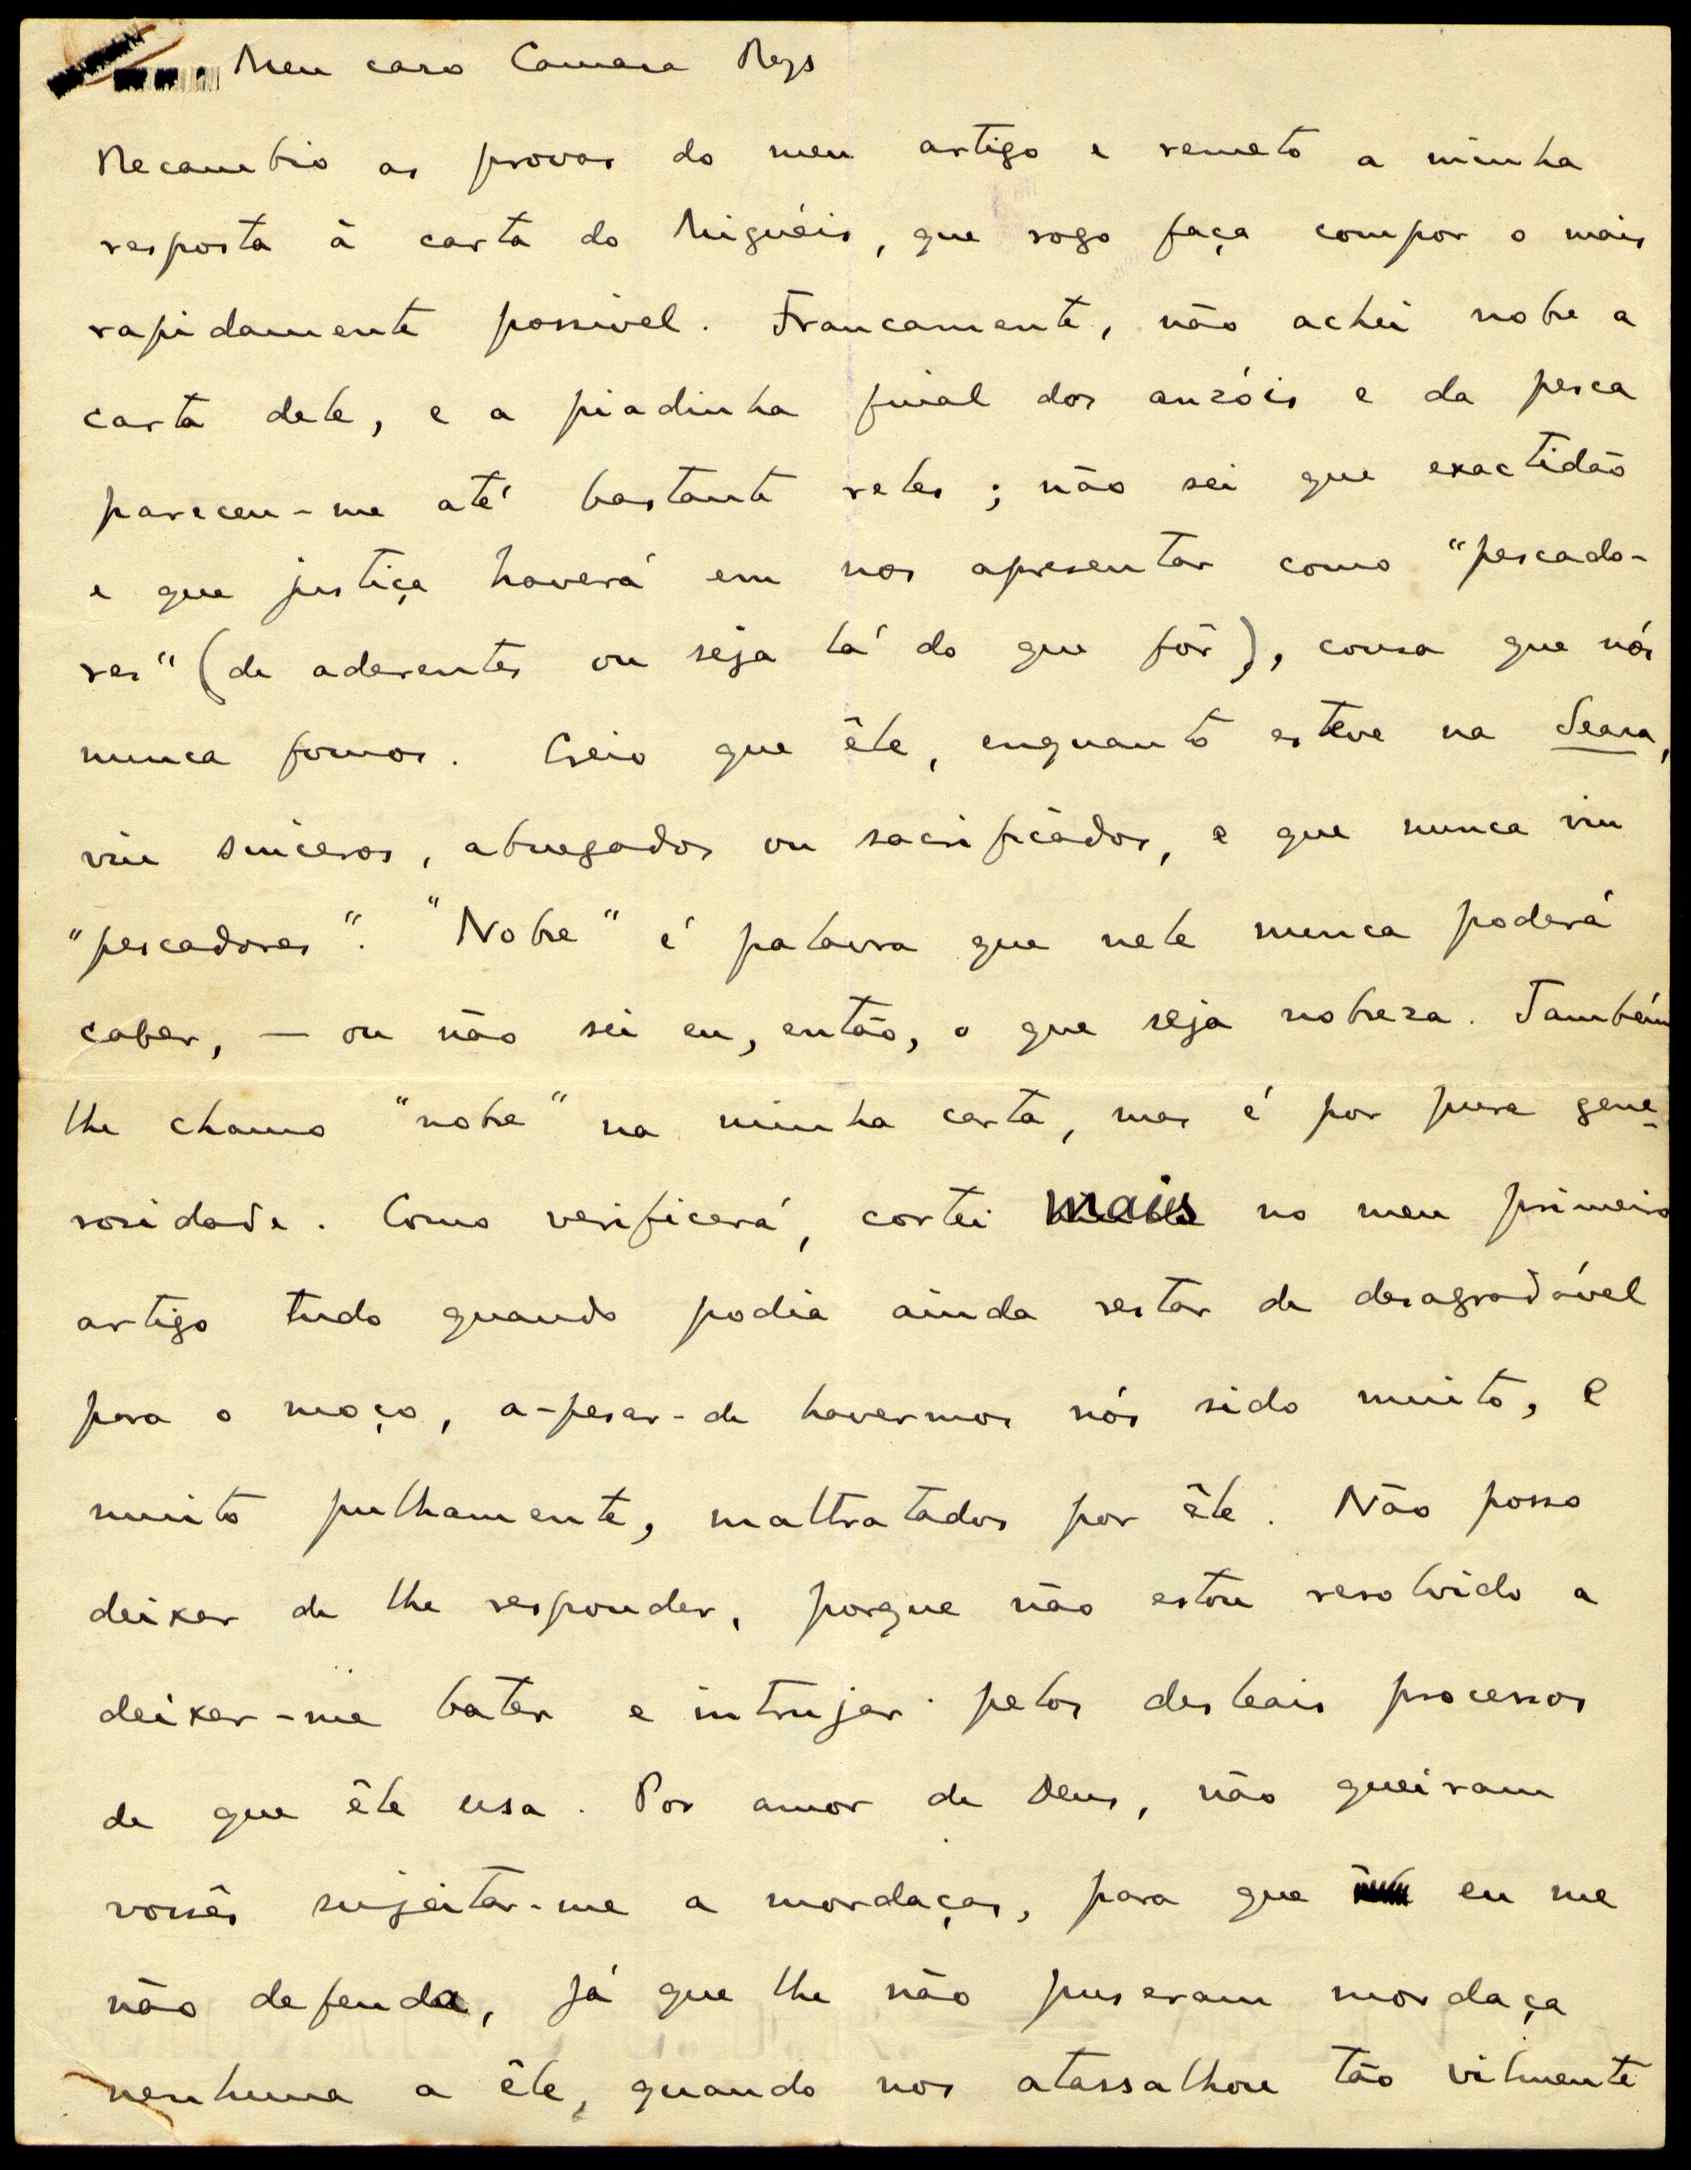 Meu caro Camara Reys
Recambio as provas do meu artigo e remeto a minha
resposta à carta do Miguéis, que rogo faça compor o mais
rapidamente possivel. Francamente, não achei nobre a
carta dele, e a piadinha final dos anzóis e da pesca
pareceu-me até bastante reles; não sei que exactidão
e que justiça haverá em nos apresentar como "pescado-
res" (de aderentes ou seja lá do que fôr), cousa que nós
nunca fomos. Creio que êle, enquanto esteve na Seara,
viu sinceros, abnegados ou sacrificados, e que nunca viu
"pescadores". "Nobre" é palavra que nele nunca poderá
caber, — ou não sei eu, então, o que seja nobreza. Também
lhe chamo "nobre" na minha carta, mas é por pura gene-
rosidade. Como verificará, cortei mais no meu primeiro
artigo tudo quando podia ainda restar de desagradável
para o moço, a-pesar-de havermos nós sido muito, e
muito pulhamente, maltratados por êle. Não posso
deixar de lhe responder, porque não estou resolvido a
deixar-me bater e intrujar pelos desleais processos
de que êle usa. Por amor de Deus, não queiram
vossês sujeitar-me a mordaças, para que eu me
não defenda, já que lhe não puseram mordaça
nenhuma a êle, quando nos atassalhou tão vilmente